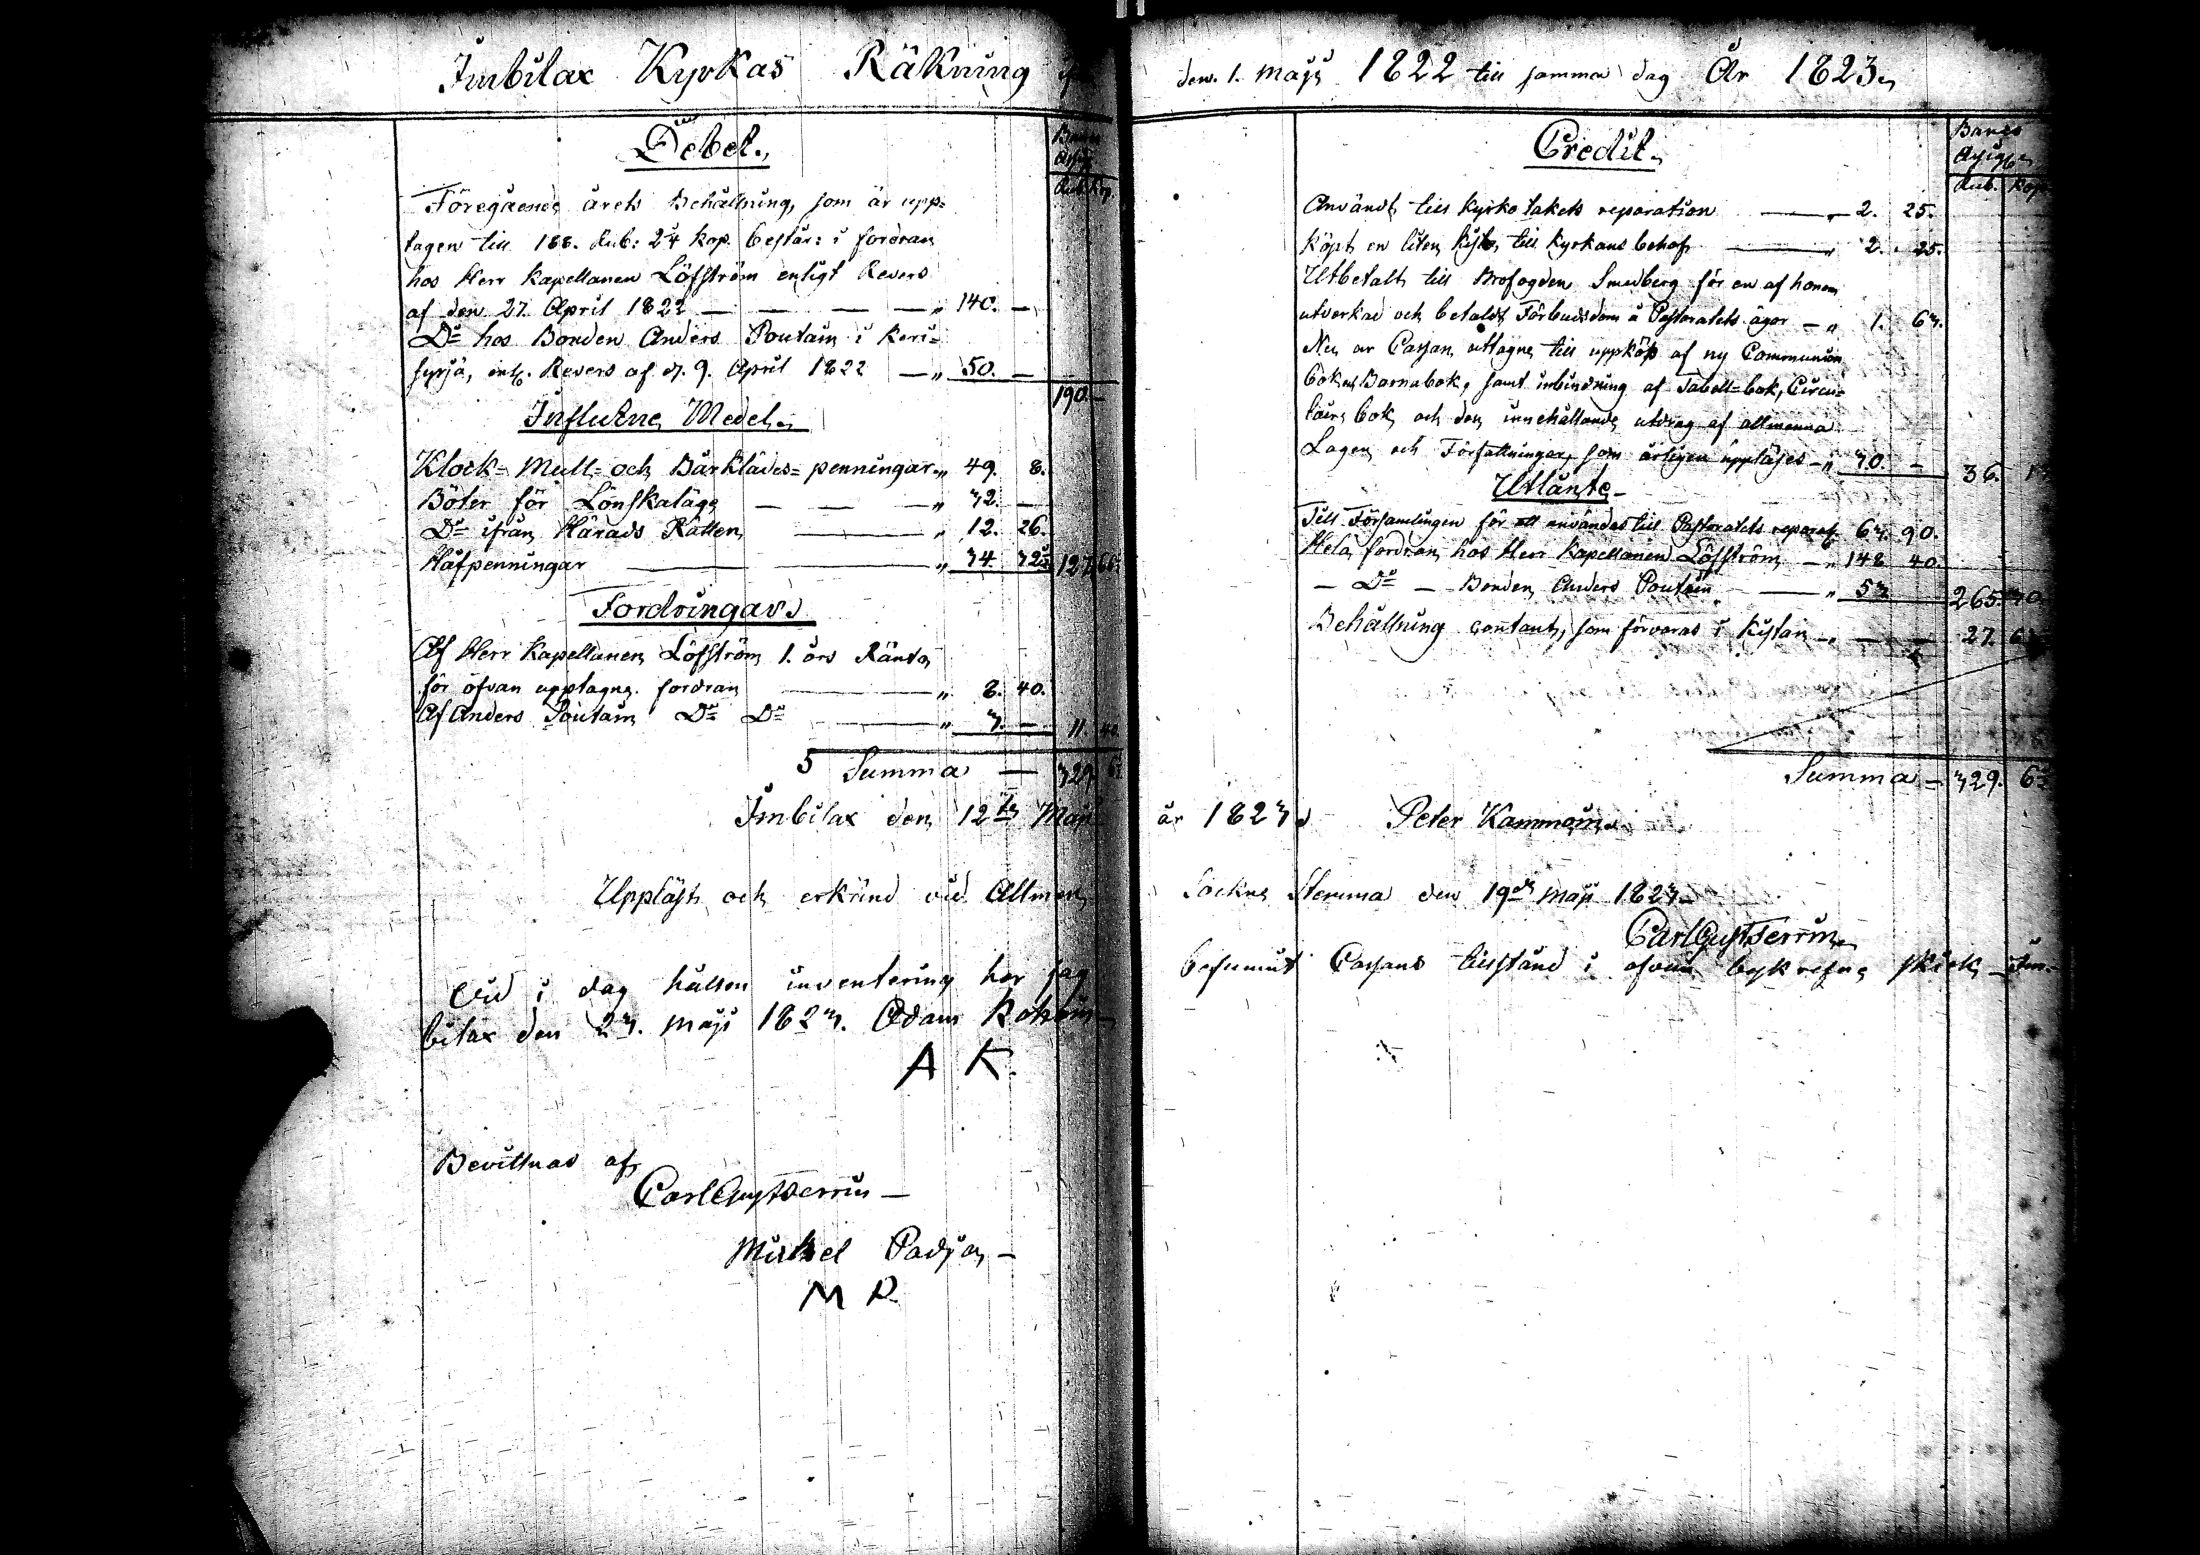 Imbilax Kyrkas Räkning
Debet.
Föregående årets Behållning, som är upp-
tagen till 188. Rub: 24 kop. består: i fordran
hos Herr Kapellanen Löfström enligt Revers
af den 27. April 1822 — — — — „ 140. —
Do hos Bonden Anders Poutain i Keri-
syrjä, enl. Revers af d. 9. April 1822 — „ 50. —
190. —
Influtne Medel.
Klock- Mull- och Bårklädes- penningar „ 49. 8.
Böter för Lönskaläge — — — „ 32. —
Do ifrån Härads Rätten — „ 12. 26.
Håfpenningar — „ 34. 32 127. 66
Fordringar
Af Herr Kapellanen Löfström 1. års Ränta
för ofvan upptagne fordran — „ 8. 40.
Af Anders Poutain Do Do — „ 3. — 11. 40.
Summa — 329. 6
Imbilax den 12te Maji
Uppläst och erkänd vid Allmän
Vid i dag hållen inventering har jag
bilax den 23. Maji 1823. Adam
A K.
Bevittnas af
Carl Gust Ferrin —
Michel Padja —
M P.
den 1. Maji 1822 till samma dag År 1823.
Credit.
Banco
Assigr
Rub. Kop.
Användt till Kyrko takets reparation — „ 2. 25.
Köpt en liten kista till Kyrkans behof — „ 2. 25.
Utbetalt till Brofogden Smedberg för en af honom
utverkad och betaldt Förbudsdom å Pastoratets ägor — „ 1. 63.
Nu ur Cassan uttagne till uppköp af ny Communion
bok, Barnabok, samt inbindning af Tabell-bok, Circu-
lairs bok och den innehållande utdrag af allmänna
Lagen och Författningar, som årligen uppläses — „ 30. — 36. 13
Utlånte
Till Församlingen för att användas till Pastoratets reparat. 63. 90.
Hela fordran hos Herr Kapellanen Löfström — „ 148 40.
— Do — Bonden Anders Poutain — „ 53 265. 30.
Behållning contant, som förvaras i Kistan — „ — — 27. 6
Summa — 329. 6
år 1823. Peter Kammonen
Sockne Stemma den 19de Maji 1823 —
Carl Gust Ferrin
befunnit Cassans tillstånd i ofvan beskrefne skick — Im-